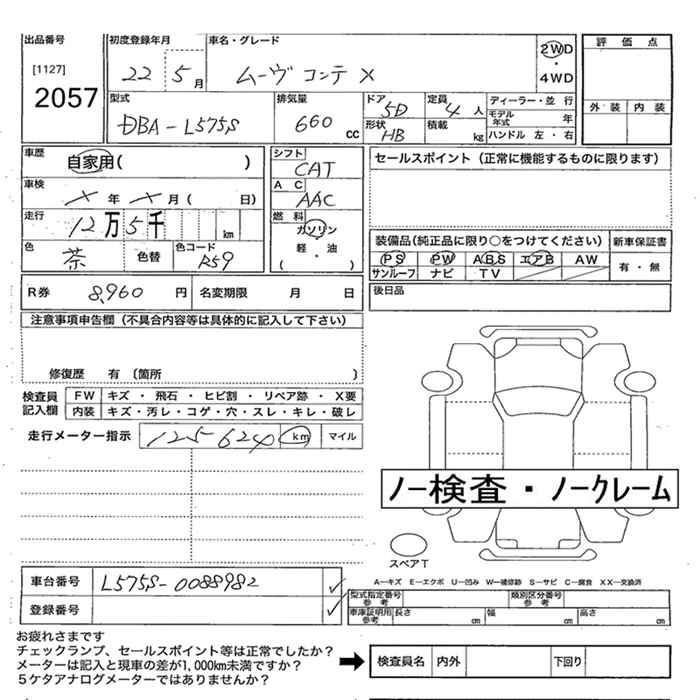 出品番号 初度登録年月 車名・グレード 評価点
[1127] 22 5月 ムーヴ コンテ X 2WD ・ 4WD
2057
型式 排気量 ドア 5D 定員 4人 ディーラー・並行 外装 内装
DBA-L575S 660cc 形状 HB 積載 kg モデル年式 年
ハンドル 左・右
車歴 自家用( ) シフト CAT セールスポイント(正常に機能するものに限ります)
車検 X年 X月( 日) AC AAC
走行 12万5千 km 燃料 ガソリン 軽・油 ( )
装備品(純正品に限り○をつけてください) 新車保証書
色 茶 色替 色コード R59 PS PW ABS エアB AW 有・無
サンルーフ ナビ TV
R券 8,960円 名変期限 月 日 後日品
注意事項申告欄(不具合内容等は具体的に記入して下さい)
修復歴 有〔箇所 〕
検査員記入欄 FW キズ・飛石・ヒビ割・リペア跡・X要
内装 キズ・汚レ・コゲ・穴・スレ・キレ・破レ
走行メーター指示 125624 km マイル
ノー検査・ノークレーム
スペアT
A―キズ E―エクボ U―凹み W―補修跡 S―サビ C―腐食 XX―交換済
車台番号 L575S-0088982 ✓
型式指定番号 参考 類別区分番号 参考
登録番号 ✓ 車庫証明用 参考 長さ cm 幅 cm 高さ cm
お疲れさまです
チェックランプ、セールスポイント等は正常でしたか?
メーターは記入と現車の差が1,000km未満ですか?
5ケタアナログメーターではありませんか?
➡ 検査員名 内外 下回り